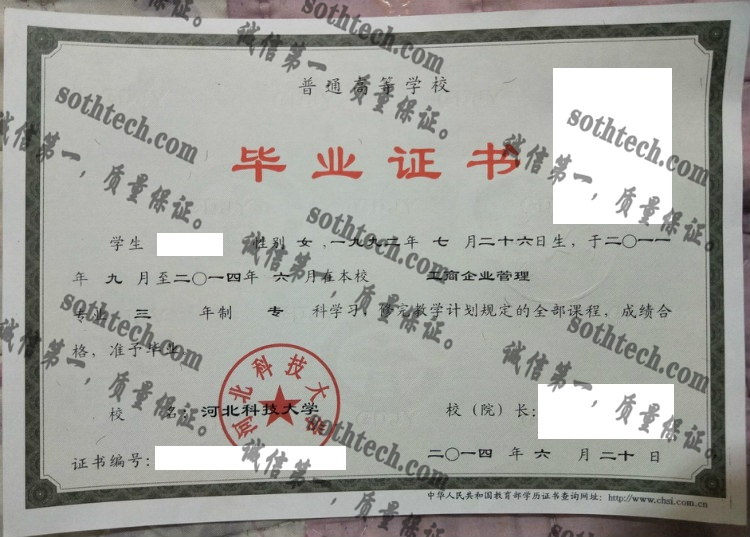 普通高等学校
毕业证书
学生 性别 女 ,一九九二年 七 月二十六日生,于二〇一一
年 九 月至二〇一四年 六 月在本校 工商企业管理
专业 三 年制 专 科学习,修完教学计划规定的全部课程,成绩合
格,准予毕业
校 名:河北科技大学 校(院)长:
河北科技大学
证书编号: 二〇一四 年 六 月 二十 日
中华人民共和国教育部学历证书查询网址:http://www.chsi.com.cn
sothtech.com
诚信第一,质量保证。
sothtech.com
诚信第一,质量保证。
sothtech.com
诚信第一,质量保证。
sothtech.com
诚信第一,质量保证。
sothtech.com
诚信第一,质量保证。
sothtech.com
诚信第一,质量保证。
sothtech.com
诚信第一,质量保证。